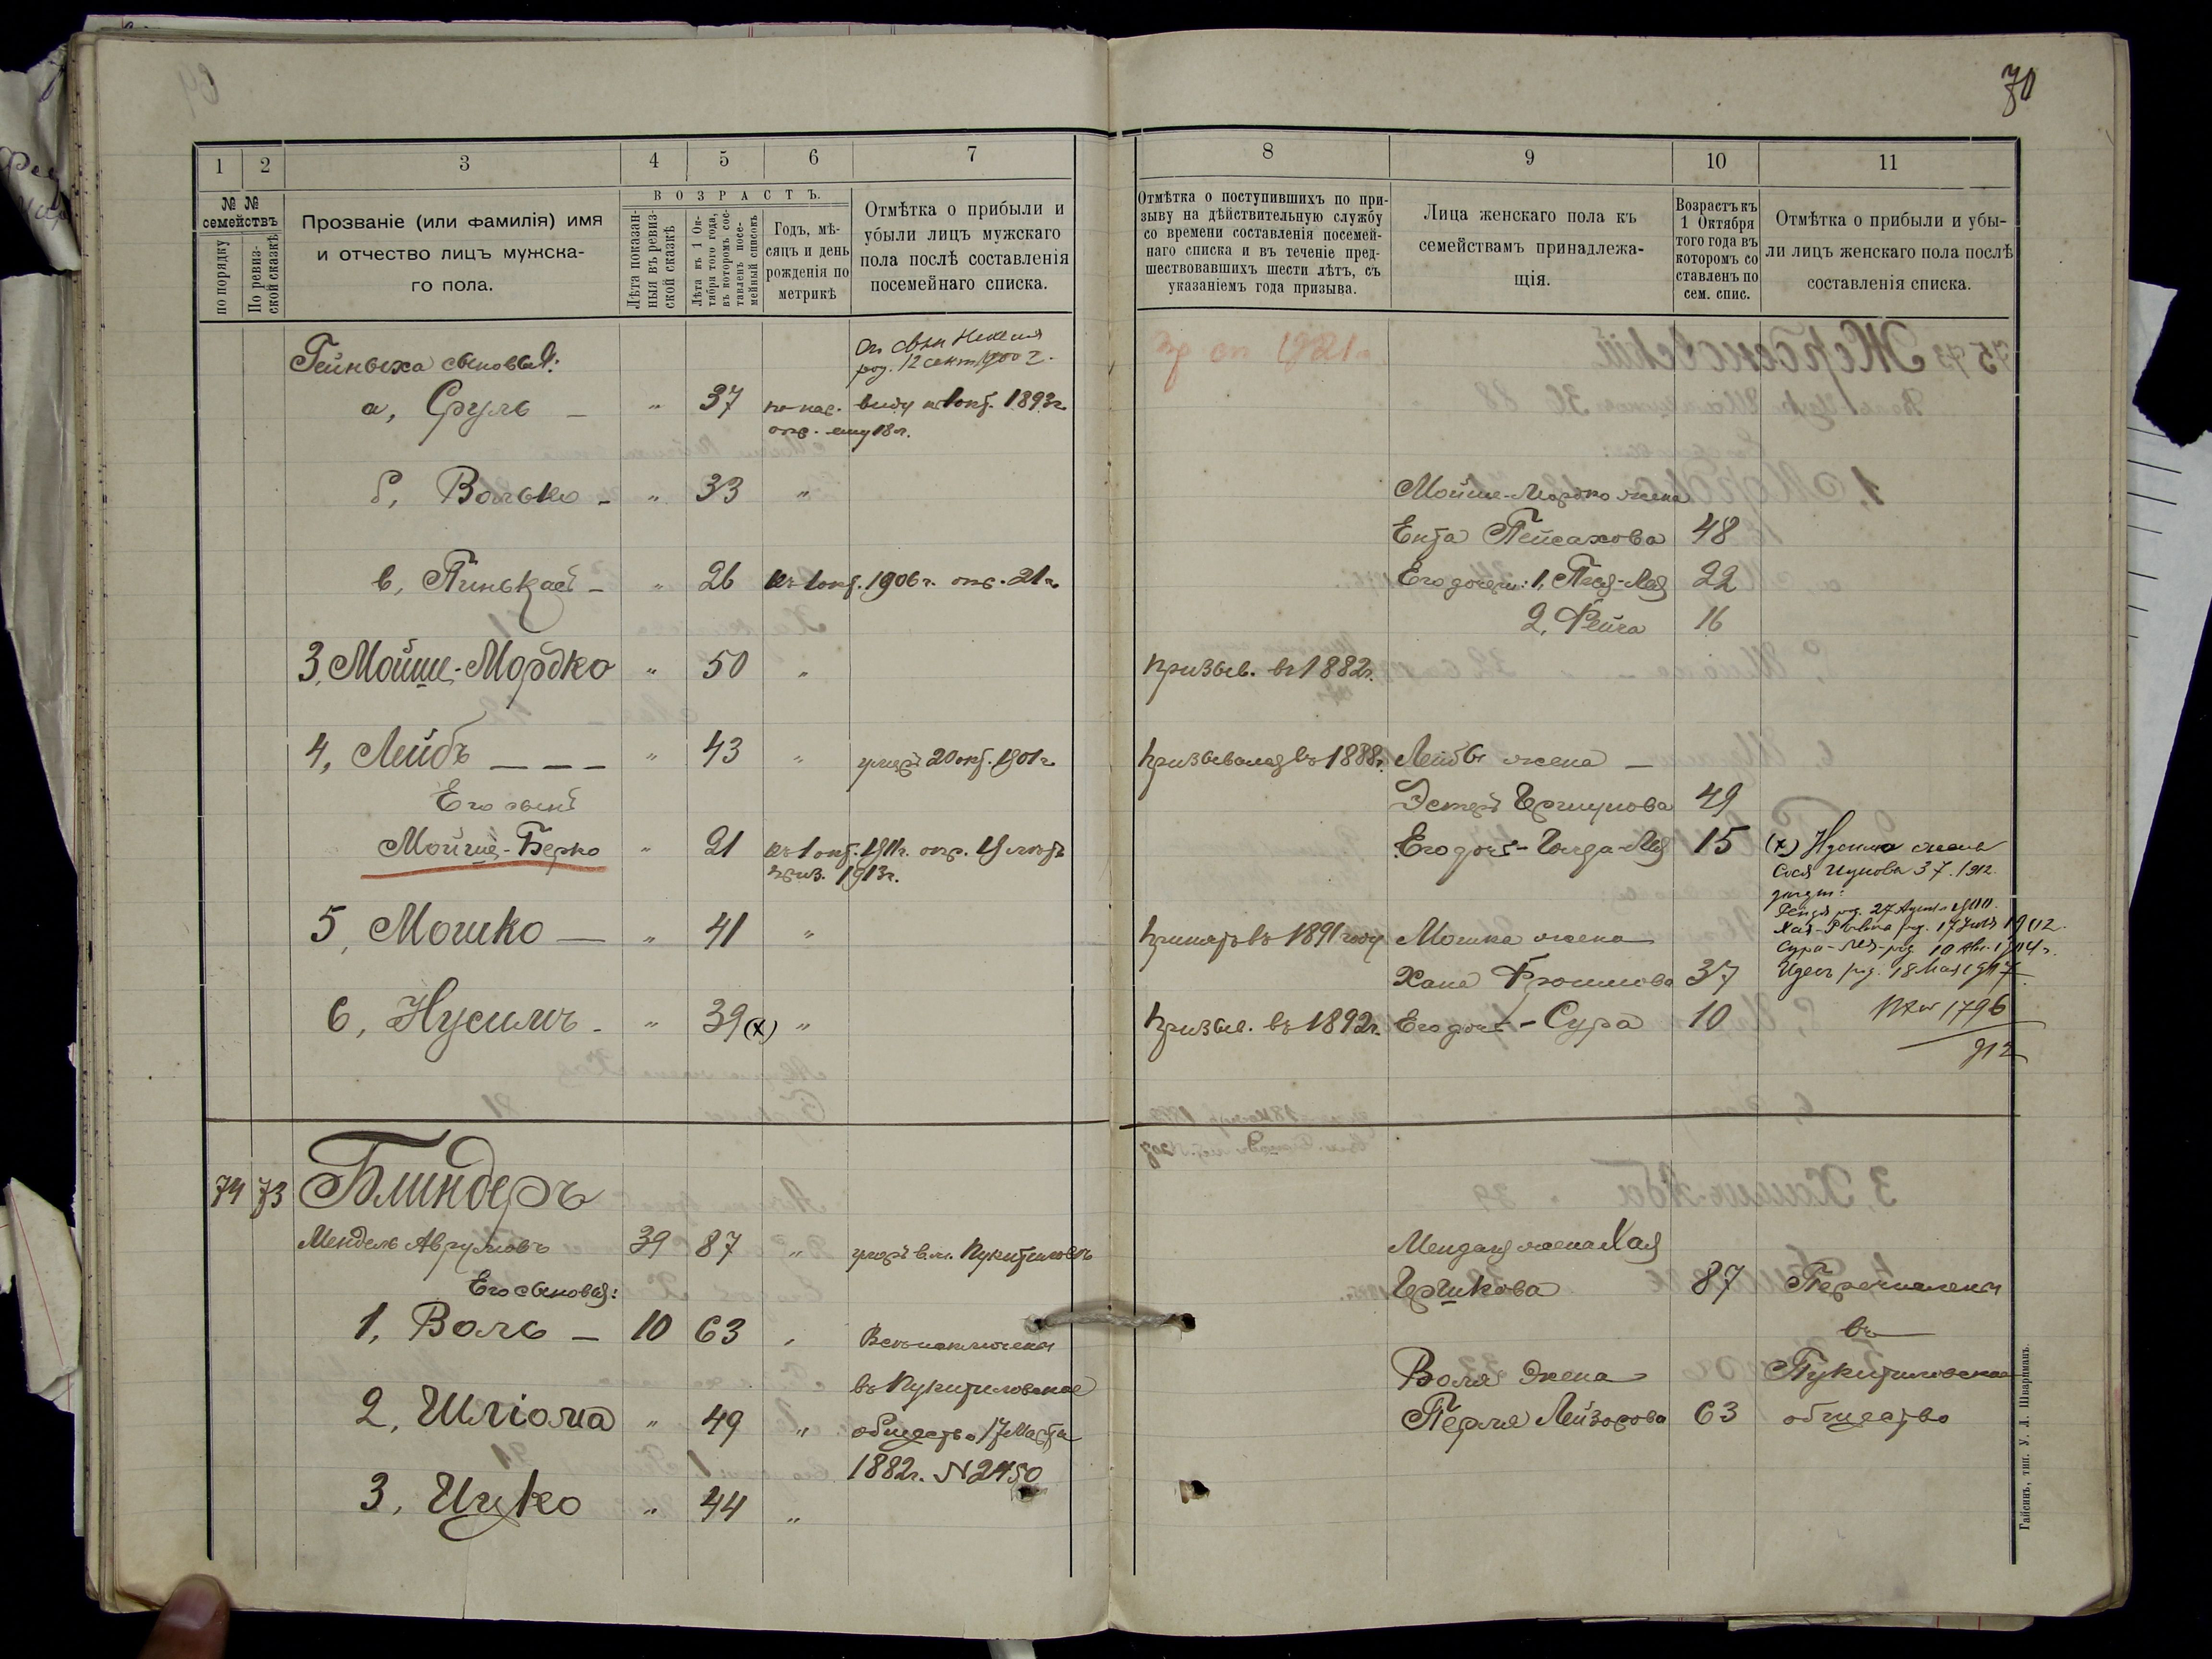 70
1
2
3
4
5
6
7
8
9
10
11
№ №
семействъ
по порядку
По ревиз-
ской сказкѣ
Прозваніе (или фамилія) имя
и отчество лицъ мужска-
го пола.
ВОЗРАСТЪ.
Лѣта показан-
ныя въ ревиз-
ской сказкѣ
Лѣта къ 1 Ок-
тября того года,
въ которомъ сос-
тавленъ посе-
мейный списокъ
Годъ, мѣ-
сяцъ и день
рожденія по
метрикѣ
Отмѣтка о прибыли и
убыли лицъ мужскаго
пола послѣ составленія
посемейнаго списка.
Отмѣтка о поступившихъ по при-
зыву на дѣйствительную службу
со времени составленія посемей-
наго списка и въ теченіе пред-
шествовавшихъ шести лѣтъ, съ
указаніемъ года призыва.
Лица женскаго пола къ
семействамъ принадлежа-
щія.
Возрастъ къ
1 Октября
того года въ
которомъ со
ставленъ по
сем. спис.
Отмѣтка о прибыли и убы-
ли лицъ женскаго пола послѣ
составленія списка.
сыновья:
род. 12 сент 1900 г.
а, Сруль — " 37 виду къ 1 окт. 1893г.
опр. ему 18 л.
б, Волько - " 33 "
Мойше-Мордко жена
Ента Пейсахова 48
в, Пинькас - " 26 къ 1 окт. 1906 г. опр. 21 г.
Его дочери: 1, 22
2, Фейга 16
3, Мойше-Мордко " 50 " призыв. въ 1882г.
4, Лейбъ — — — " 43 " умеръ 20 окт. 1901 г. призывался въ 1888г. Лейбы жена —
Его сынъ
Эстеръ 49
Мойше-Берко " 21 къ 1 окт. 1911г. опр. 19 лѣтъ
приз. 1913г.
Его дочь - Голда-Лея 15
(х) Нусима жена
Сося Ицкова 37. 1912.
род. 27 1900.
род. 17 1902.
Сура-Лея-род. 10 1904 г.
род. 18 Мая
1796
912
5, Мошко — " 41 " принятъ въ 1891 году Мошка жена
Хана Фроимова 37
6, Нусимъ - " 39 (х) " призыв. въ 1892г. Его дочь - Сура 10
74 73 Блиндеръ
Мендель Аврумовъ 39 87 " умеръ
Менделя жена Хая
Гершкова 87 Перечислены
Его сыновья:
1,Воль — 10 63 "
въ
въ Пукитиловское
Воля жена
Пукитиловское
2, Шліома " 49 " общество 17 Марта
Перля Лейзорова 63 общество
1882г. N 2450
3, Ицко " 44 "
Гайсинъ, тип. У. Л. Шварцманъ.